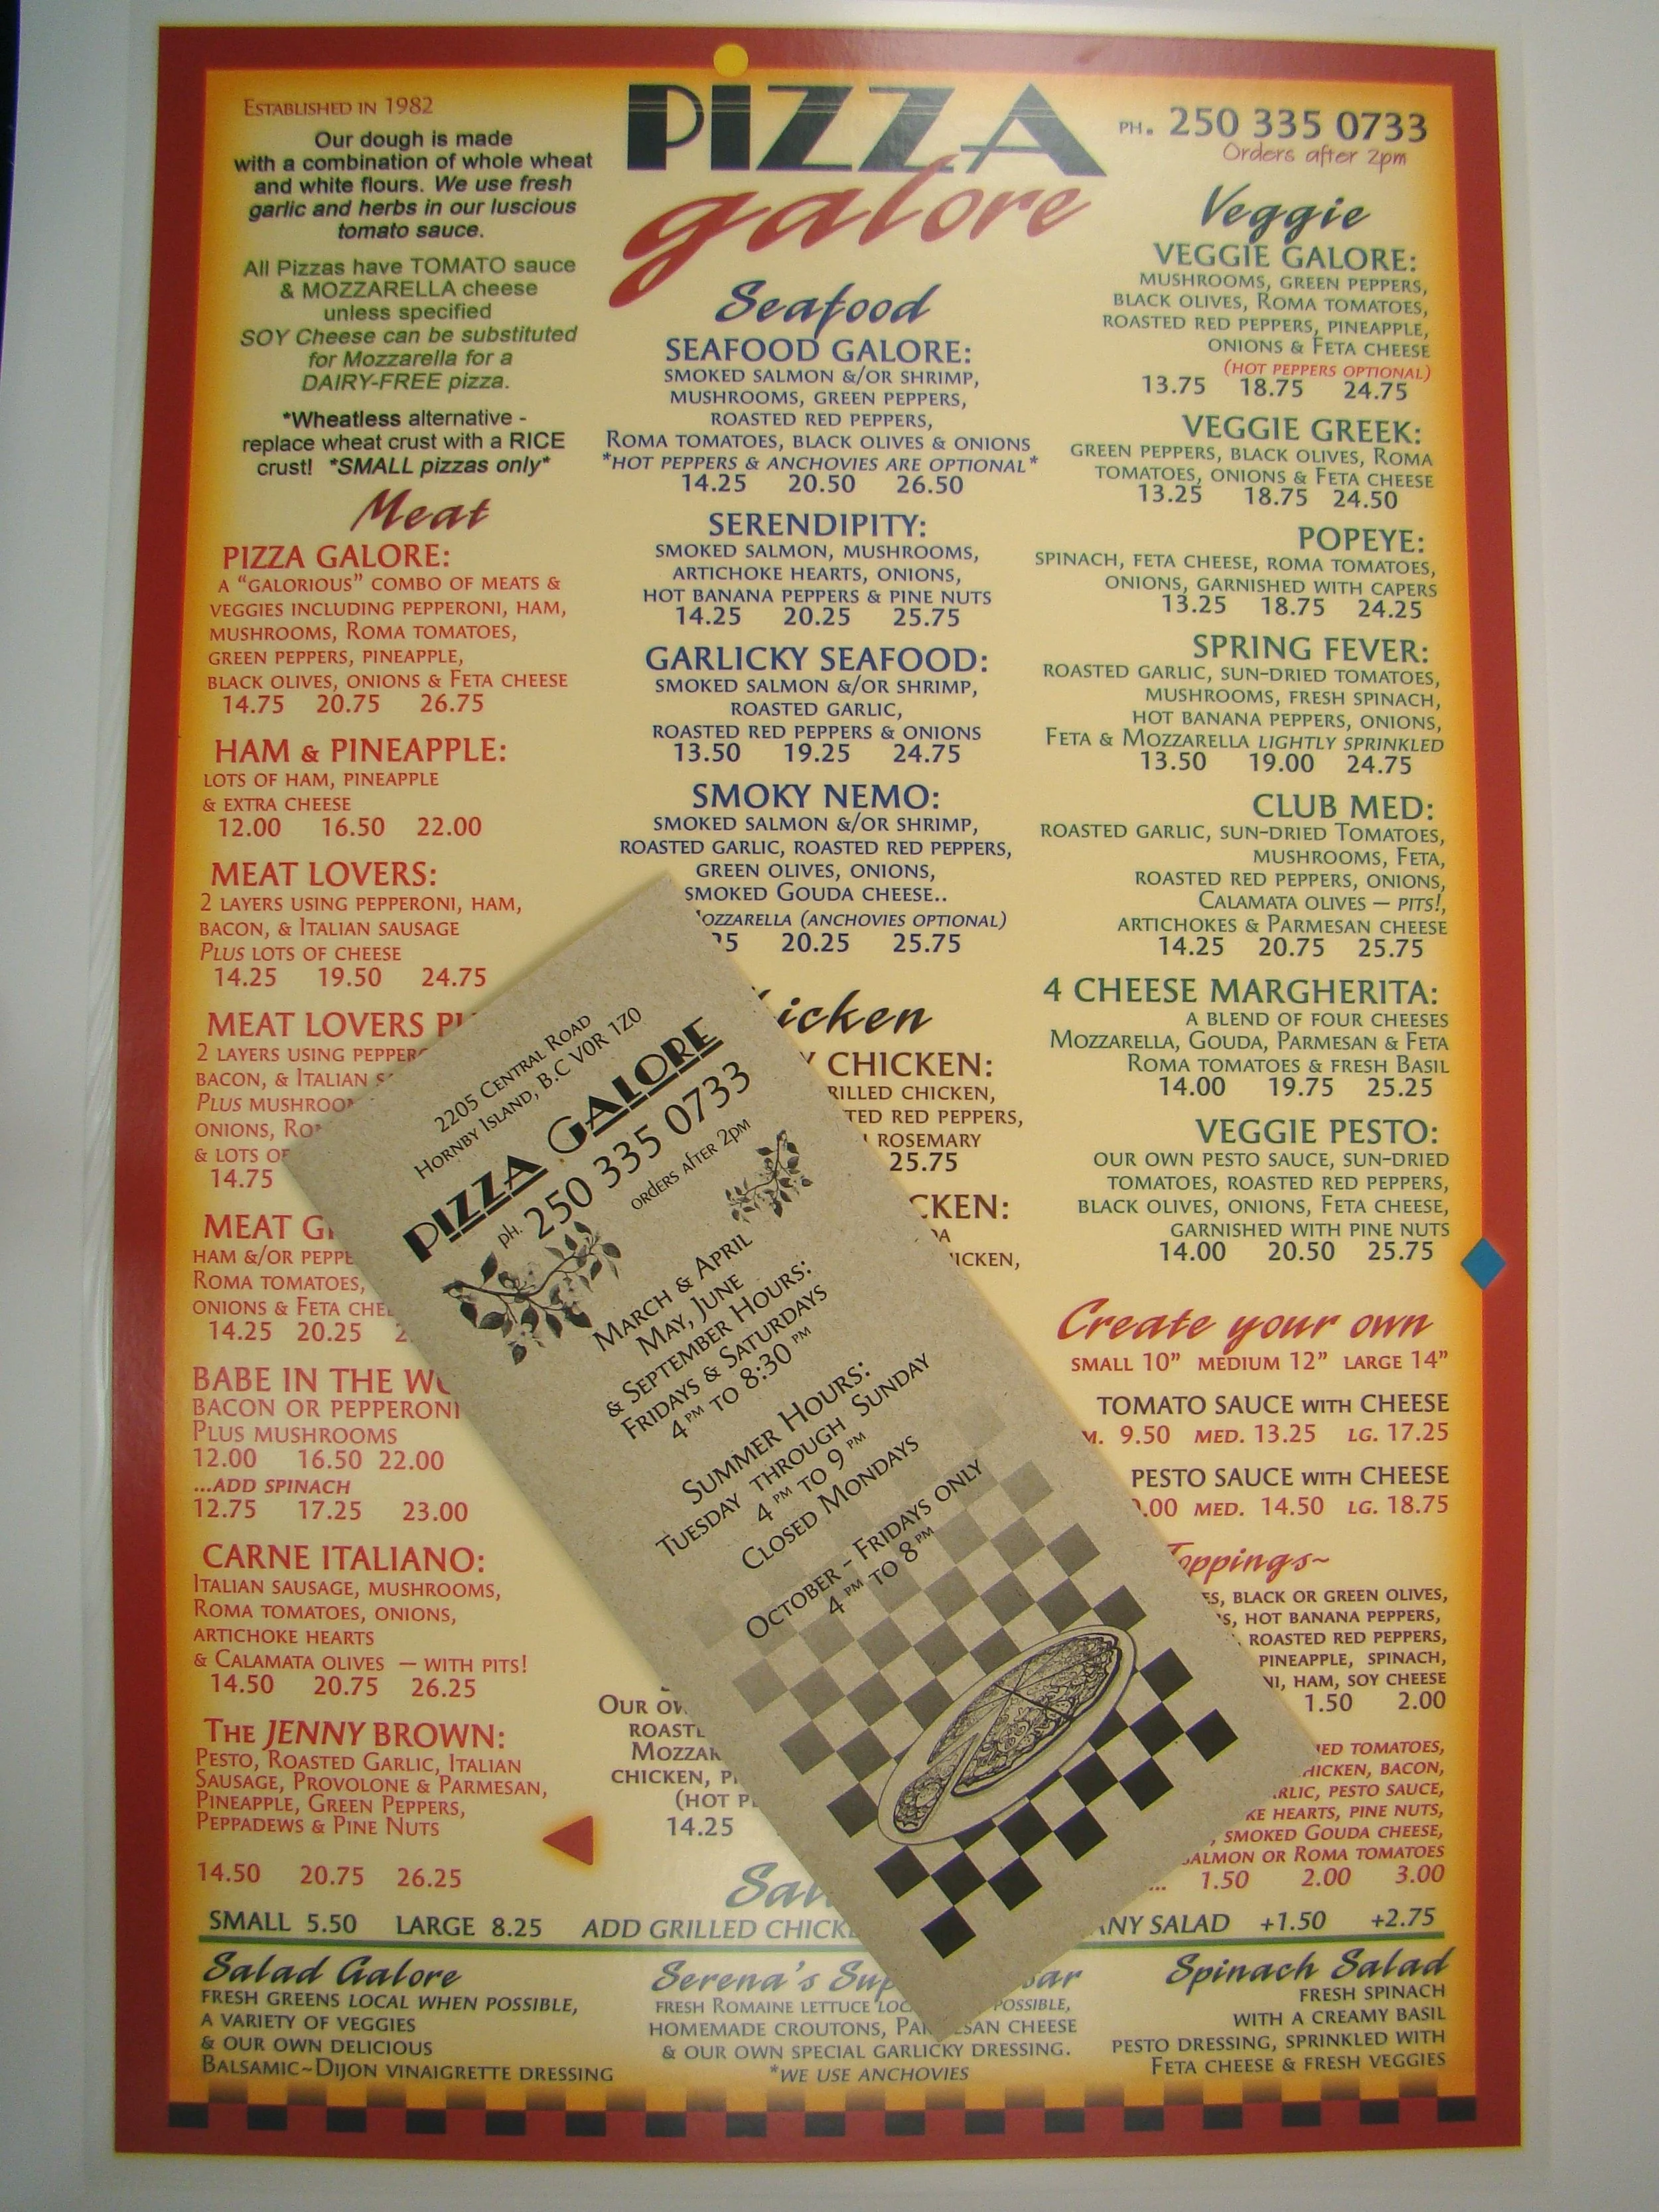 Established in 1982
Our dough is made
with a combination of whole wheat
and white flours. We use fresh
garlic and herbs in our luscious
tomato sauce.
All Pizzas have TOMATO sauce
& MOZZARELLA cheese
unless specified
SOY Cheese can be substituted
for Mozzarella for a
DAIRY-FREE pizza.
*Wheatless alternative -
replace wheat crust with a RICE
crust! *SMALL pizzas only*
PIZZA
galore
PH. 250 335 0733
Orders after 2pm
Meat
PIZZA GALORE:
A "GALORIOUS" COMBO OF MEATS &
VEGGIES INCLUDING PEPPERONI, HAM,
MUSHROOMS, ROMA TOMATOES,
GREEN PEPPERS, PINEAPPLE,
BLACK OLIVES, ONIONS & FETA CHEESE
14.75 20.75 26.75
HAM & PINEAPPLE:
LOTS OF HAM, PINEAPPLE
& EXTRA CHEESE
12.00 16.50 22.00
MEAT LOVERS:
2 LAYERS USING PEPPERONI, HAM,
BACON, & ITALIAN SAUSAGE
PLUS LOTS OF CHEESE
14.25 19.50 24.75
MEAT LOVERS
2 LAYERS USING
BACON, & ITALIAN
PLUS
ONIONS,
& LOTS
14.75
MEAT
HAM &/OR
ROMA TOMATOES,
ONIONS & FETA
14.25 20.25
BABE IN THE
BACON OR PEPPERONI
PLUS MUSHROOMS
12.00 16.50 22.00
...ADD SPINACH
12.75 17.25 23.00
CARNE ITALIANO:
ITALIAN SAUSAGE, MUSHROOMS,
ROMA TOMATOES, ONIONS,
ARTICHOKE HEARTS
& CALAMATA OLIVES — WITH PITS!
14.50 20.75 26.25
THE JENNY BROWN:
PESTO, ROASTED GARLIC, ITALIAN
SAUSAGE, PROVOLONE & PARMESAN,
PINEAPPLE, GREEN PEPPERS,
PEPPADEWS & PINE NUTS
14.50 20.75 26.25
Seafood
SEAFOOD GALORE:
SMOKED SALMON &/OR SHRIMP,
MUSHROOMS, GREEN PEPPERS,
ROASTED RED PEPPERS,
ROMA TOMATOES, BLACK OLIVES & ONIONS
*HOT PEPPERS & ANCHOVIES ARE OPTIONAL*
14.25 20.50 26.50
SERENDIPITY:
SMOKED SALMON, MUSHROOMS,
ARTICHOKE HEARTS, ONIONS,
HOT BANANA PEPPERS & PINE NUTS
14.25 20.25 25.75
GARLICKY SEAFOOD:
SMOKED SALMON &/OR SHRIMP,
ROASTED GARLIC,
ROASTED RED PEPPERS & ONIONS
13.50 19.25 24.75
SMOKY NEMO:
SMOKED SALMON &/OR SHRIMP,
ROASTED GARLIC, ROASTED RED PEPPERS,
GREEN OLIVES, ONIONS,
SMOKED GOUDA CHEESE..
(ANCHOVIES OPTIONAL)
20.25 25.75
CHICKEN:
CHICKEN,
RED PEPPERS,
ROSEMARY
25.75
OUR
14.25
Veggie
VEGGIE GALORE:
MUSHROOMS, GREEN PEPPERS,
BLACK OLIVES, ROMA TOMATOES,
ROASTED RED PEPPERS, PINEAPPLE,
ONIONS & FETA CHEESE
(HOT PEPPERS OPTIONAL)
13.75 18.75 24.75
VEGGIE GREEK:
GREEN PEPPERS, BLACK OLIVES, ROMA
TOMATOES, ONIONS & FETA CHEESE
13.25 18.75 24.50
POPEYE:
SPINACH, FETA CHEESE, ROMA TOMATOES,
ONIONS, GARNISHED WITH CAPERS
13.25 18.75 24.25
SPRING FEVER:
ROASTED GARLIC, SUN-DRIED TOMATOES,
MUSHROOMS, FRESH SPINACH,
HOT BANANA PEPPERS, ONIONS,
FETA & MOZZARELLA LIGHTLY SPRINKLED
13.50 19.00 24.75
CLUB MED:
ROASTED GARLIC, SUN-DRIED TOMATOES,
MUSHROOMS, FETA,
ROASTED RED PEPPERS, ONIONS,
CALAMATA OLIVES — PITS!,
ARTICHOKES & PARMESAN CHEESE
14.25 20.75 25.75
4 CHEESE MARGHERITA:
A BLEND OF FOUR CHEESES
MOZZARELLA, GOUDA, PARMESAN & FETA
ROMA TOMATOES & FRESH BASIL
14.00 19.75 25.25
VEGGIE PESTO:
OUR OWN PESTO SAUCE, SUN-DRIED
TOMATOES, ROASTED RED PEPPERS,
BLACK OLIVES, ONIONS, FETA CHEESE,
GARNISHED WITH PINE NUTS
14.00 20.50 25.75
Create your own
SMALL 10" MEDIUM 12" LARGE 14"
TOMATO SAUCE WITH CHEESE
9.50 MED. 13.25 LG. 17.25
PESTO SAUCE WITH CHEESE
MED. 14.50 LG. 18.75
BLACK OR GREEN OLIVES,
HOT BANANA PEPPERS,
ROASTED RED PEPPERS,
PINEAPPLE, SPINACH,
HAM, SOY CHEESE
1.50 2.00
TOMATOES,
BACON,
PESTO SAUCE,
HEARTS, PINE NUTS,
SMOKED GOUDA CHEESE,
OR ROMA TOMATOES
1.50 2.00 3.00
2205 Central Road
Hornby Island, B.C V0R 1Z0
Pizza Galore
ph. 250 335 0733
orders after 2pm
March & April
May, June
& September Hours:
Fridays & Saturdays
4 PM to 8:30 PM
Summer Hours:
Tuesday through Sunday
4 PM to 9 PM
Closed Mondays
October - Fridays only
4 PM to 8 PM
SMALL 5.50 LARGE 8.25 ADD GRILLED ANY SALAD +1.50 +2.75
Salad Galore
FRESH GREENS LOCAL WHEN POSSIBLE,
A VARIETY OF VEGGIES
& OUR OWN DELICIOUS
BALSAMIC~DIJON VINAIGRETTE DRESSING
Serena's
FRESH ROMAINE LETTUCE POSSIBLE,
HOMEMADE CROUTONS, PARMESAN CHEESE
& OUR OWN SPECIAL GARLICKY DRESSING.
*WE USE ANCHOVIES
Spinach Salad
FRESH SPINACH
WITH A CREAMY BASIL
PESTO DRESSING, SPRINKLED WITH
FETA CHEESE & FRESH VEGGIES